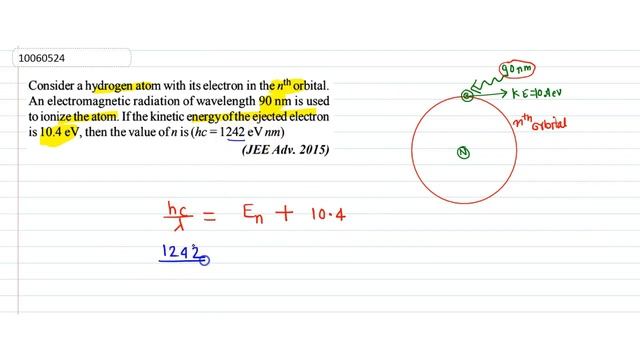 10060524
Consider a hydrogen atom with its electron in the nth orbital.
An electromagnetic radiation of wavelength 90 nm is used
to ionize the atom. If the kinetic energy of the ejected electron
is 10.4 eV, then the value of n is (hc = 1242 eV nm)
(JEE Adv. 2015)
90 nm
e
KE=10.4eV
nth orbital
N
hc/λ = En + 10.4
1242